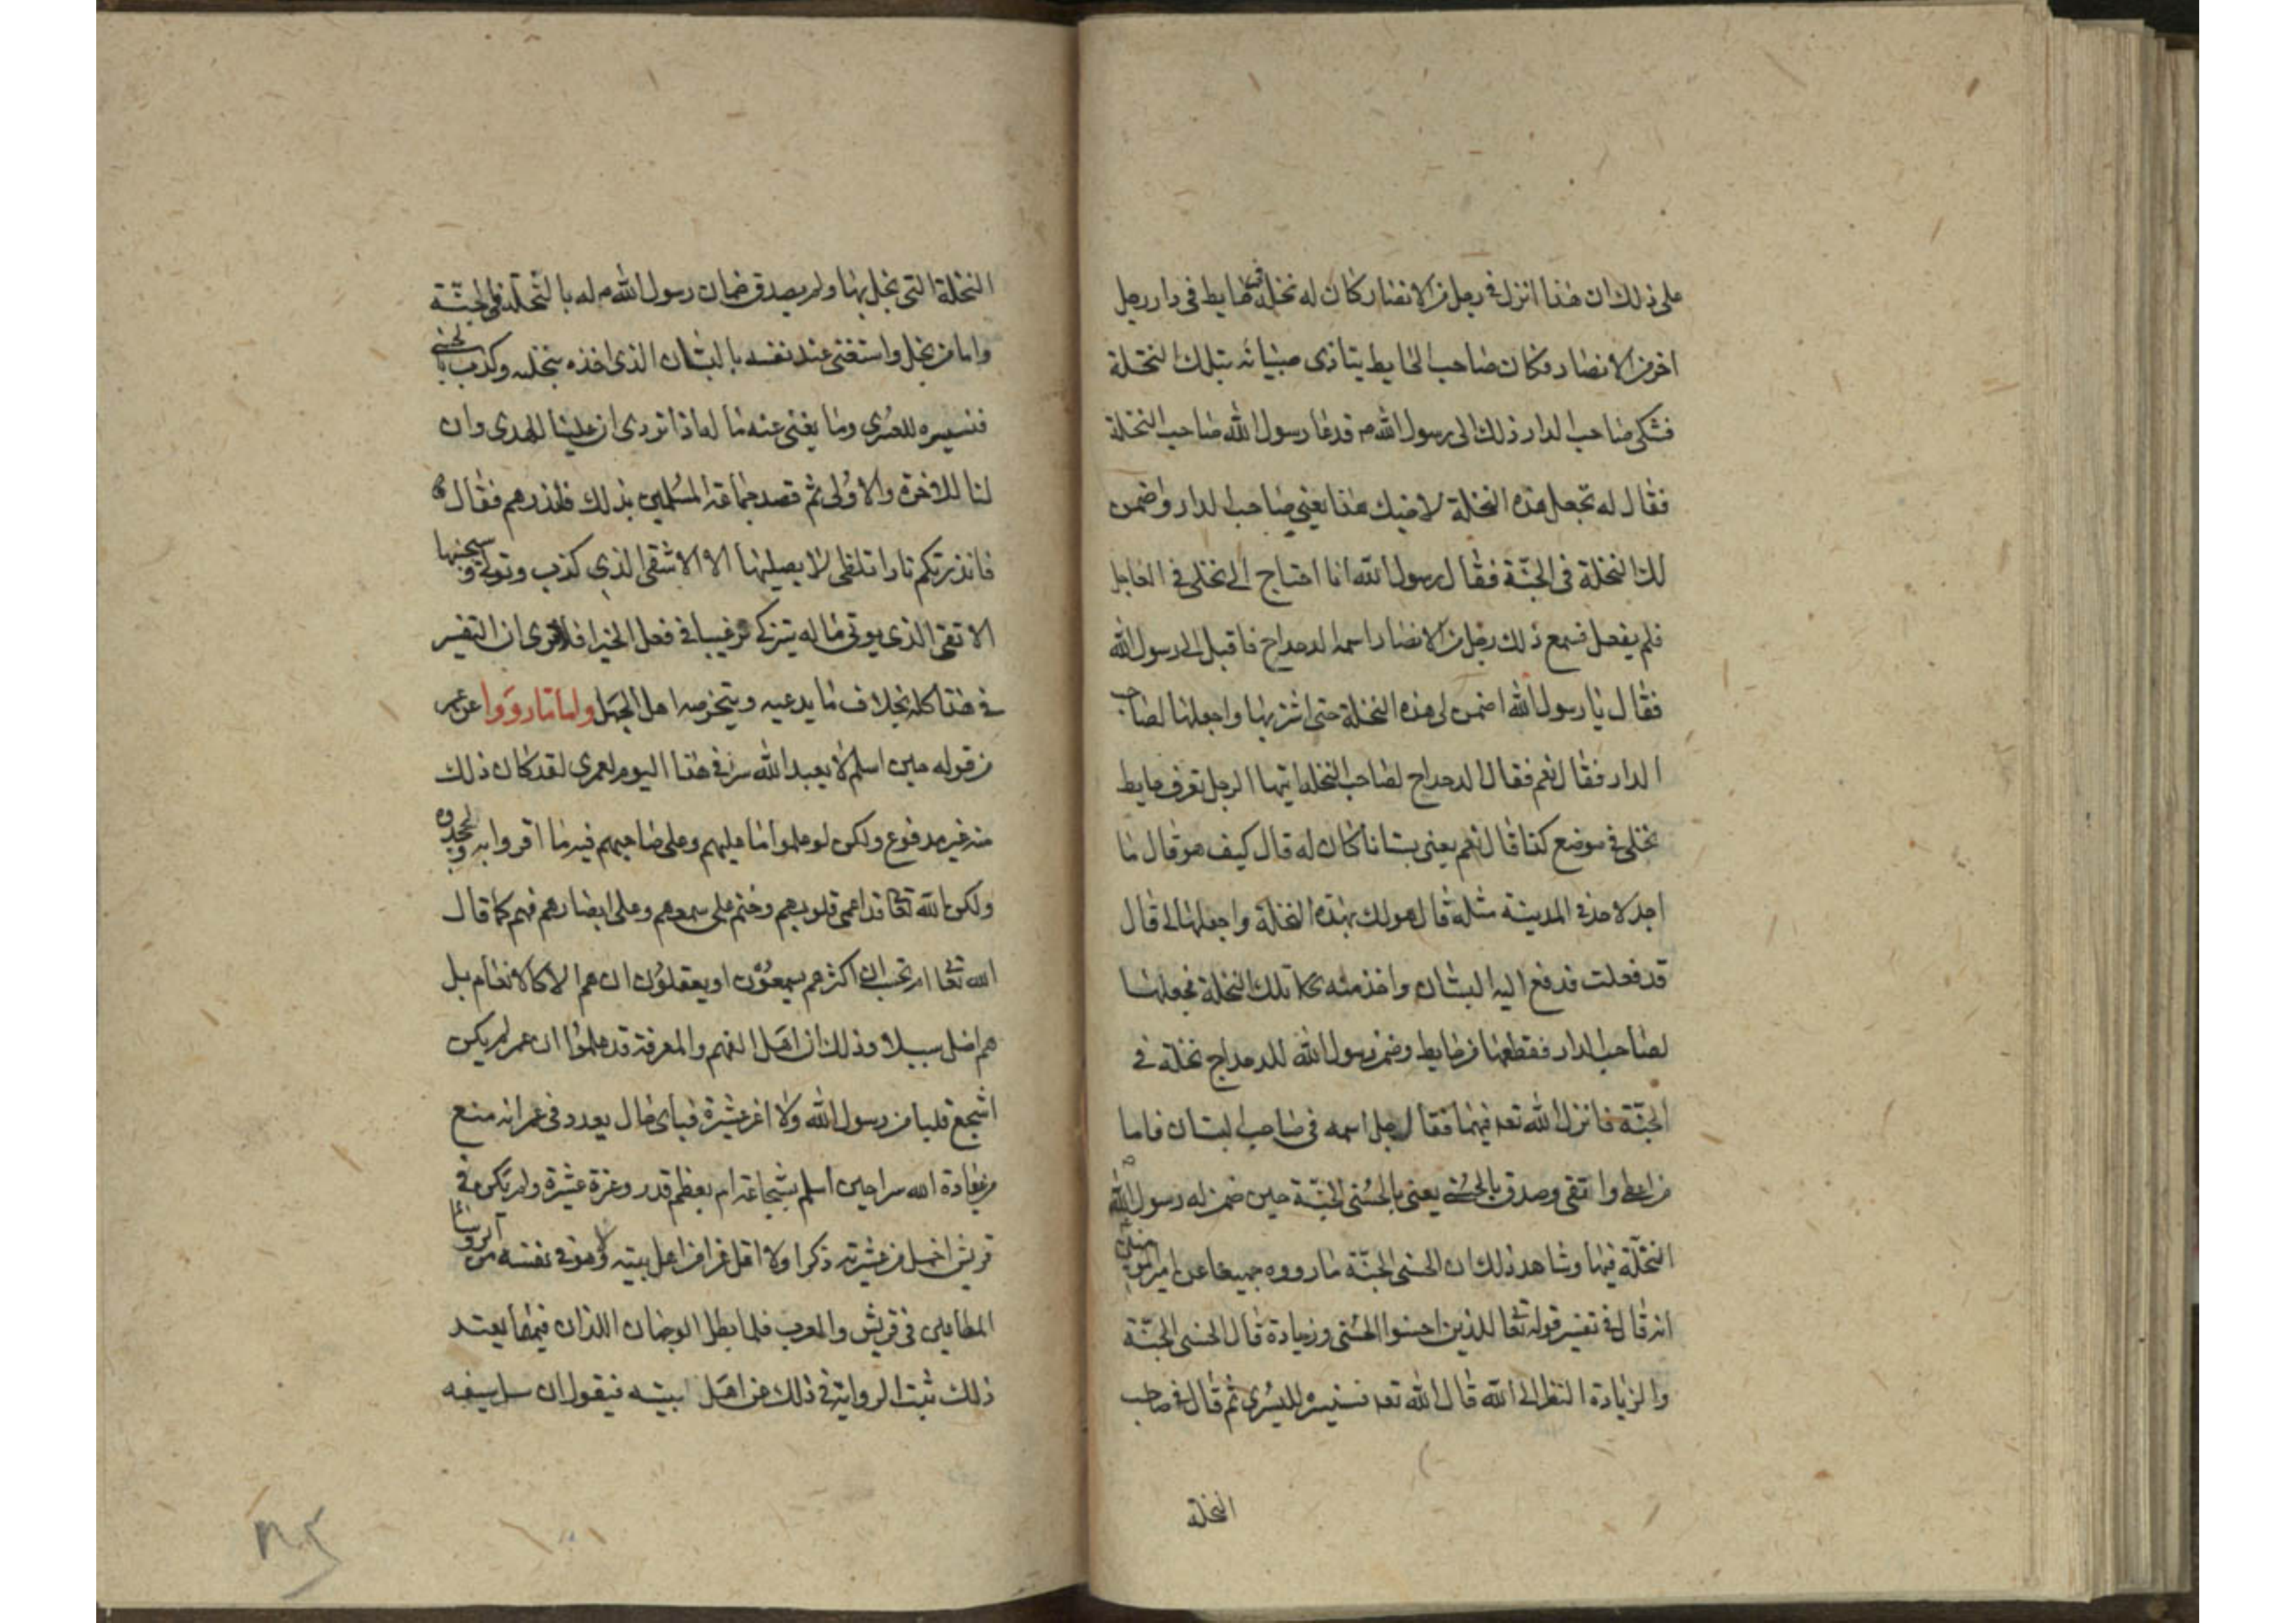 على ذلك ان هذا انزل في رجل من الانصار كان له نخلة في حايط في دار رجل
اخر من الانصار وكان صاحب الحايط يتاذى صبيانه بتلك النخلة
فشكى صاحب الدار ذلك الى رسول الله ص فدعا رسول الله صاحب النخلة
فقال له تجعل هذه النخلة لاخيك هذا يعني صاحب الدار واضمن
لك النخلة في الجنّة فقال لرسول الله انا احتاج الى نخلي في العاجل
فلم يفعل فسمع ذلك رجل من الانصار اسمه الدحداح فاقبل الى رسول الله
فقال يا رسول الله اضمن لي هذه النخلة حتى اشتريها واجعلها لصاحب
الدار فقال نعم فقال الدحداح لصاحب النخلة ايّها الرجل تعرف حايط
نخلي في موضع كذا قال نعم يعني بستانا كان له قال كيف هو قال ما
اجد لاحد في المدينة مثله قال هو لك بهذه النخلة واجعلها لي قال
قد فعلت فدفع اليه البستان واخذ منه تلك النخلة فجعلها
لصاحب الدار فقطعها من حايط وضمن رسول الله للدحداح نخلة في
الجنّة فانزل الله تعه فيهما فقال جل اسمه في صاحب البستان فاما
من اعطى واتقى وصدق بالحسنى يعني بالحسنى الجنّة حين ضمن له رسول الله
النخلة فيها وشاهد ذلك ان الحسنى الجنّة ما رووه جميعا عن امير المؤمنين
انه قال في تفسير قوله تعا للذين احسنوا الحسنى وزيادة قال الحسنى الجنّة
والزيادة النظر الى الله قال الله تعه فسنيسره لليسرى ثم قال في صاحب
النخلة
النخلة التي بخل بها ولم يصدق ضمان رسول الله ص له بالنّخلة في الجنّة
واما من بخل واستغنى عند نفسه بالبستان الذي اخذه بنخله وكذب بالحسنى
فسنيسره للعسرى وما يغنى عنه ماله اذا تردى ان علينا للهدى وان
لنا للاخرة والاولى ثم قصد جماعة المسلمين بذلك فانذرهم فقال
فانذرتكم نارا تلظى لا يصليها الا الاشقى الذي كذب وتولى وسيجنبها
الاتقى الذي يوتي ماله يتزكى ترغيبا في فعل الخير افلا ترى ان التفسير
في هذا كله بخلاف ما يدعيه ويتخرصه اهل الجهل واما ما رووا عن عمر
من قوله حين اسلم لا يعبد الله سرا في هذا اليوم لعمري لقد كان ذلك
منه غير مدفوع ولكن لو علموا ما عليهم وعلى صاحبهم فيه ما اقروا به
ولكن الله تعا قد اعمى قلوبهم وختم على سمعهم وعلى ابصارهم فهم كما قال
الله تعا ام تحسب ان اكثرهم يسمعون او يعقلون ان هم الا كالانعام بل
هم اضل سبيلا وذلك ان اهل الفهم والمعرفة قد علموا ان عمر لم يكن
اشجع قلبا من رسول الله ولا اعز عشيرة فباى حال يعدد في عمر انه منع
من عبادة الله سرا حين اسلم بشجاعة ام بعظم قدر وعزة عشيرة ولم يكن في
قريش اخمل من عشيرته ذكرا ولا اقل عزا من اهل بيته ولا هو في نفسه من الروسا
المطاعين في قريش والعرب فلما بطل الوجهان اللذان فيهما يعتد
ذلك ثبت الرواية في ذلك عن اهل بيته فيقول ان سل سيفه